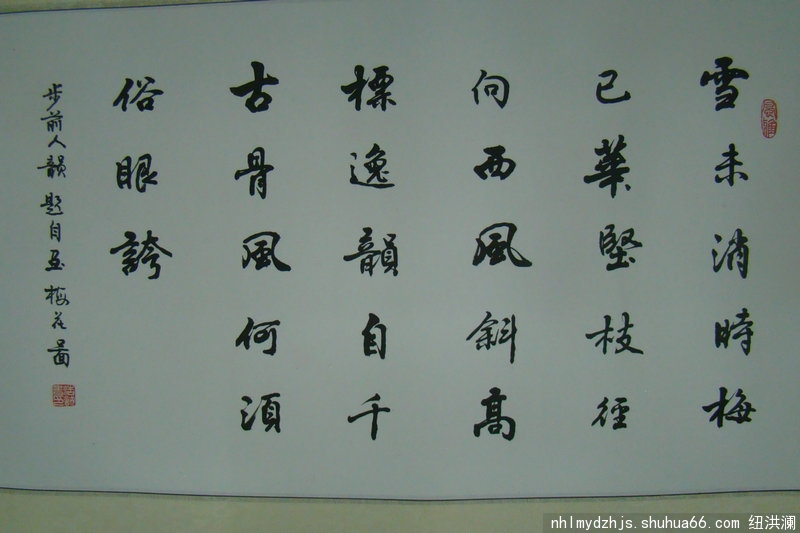 雪未消時梅
已華堅枝徑
向西風斜高
標逸韻自千
古骨風何須
俗眼誇
步前人韻題自画梅花圖
nhlmydzhjs.shuhua66.com 纽洪澜